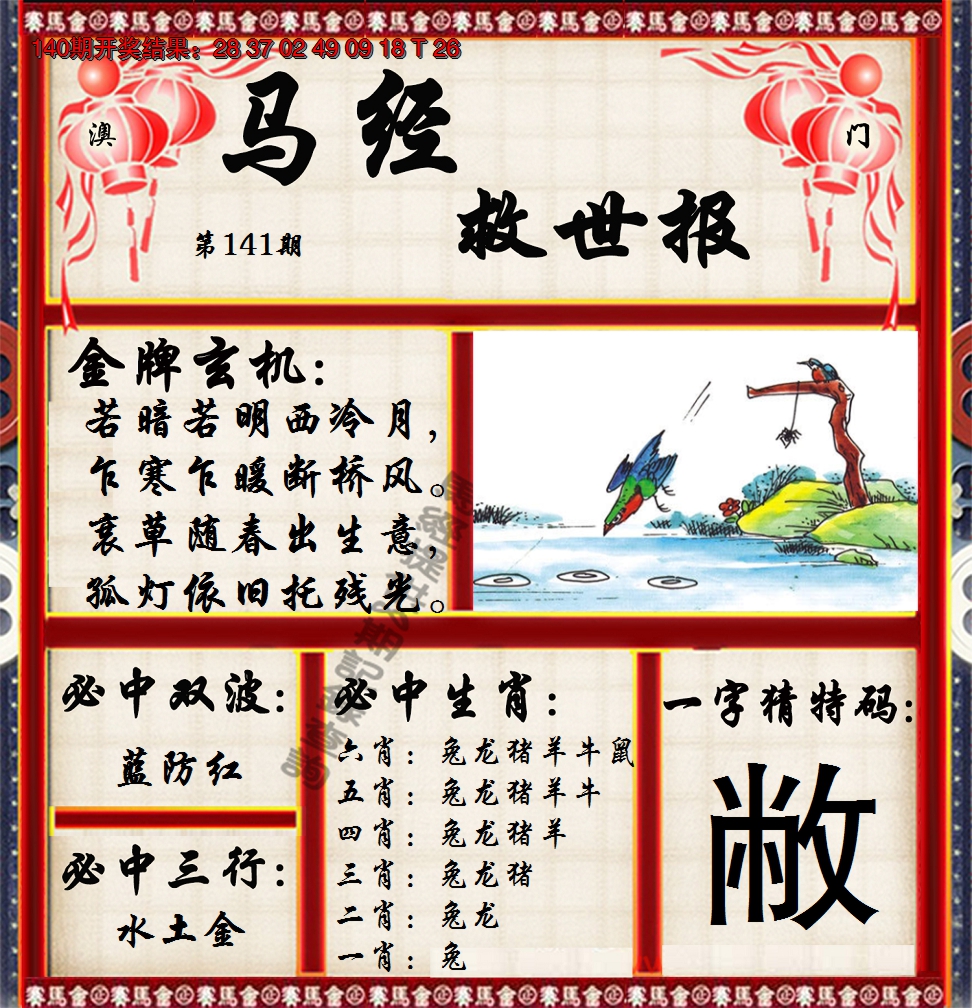 賽馬會
140期开奖结果：28 37 02 49 09 18 T 26
澳
门
马经
救世报
第141期
金牌玄机：
若暗若明西冷月，
乍寒乍暖断桥风。
衰草随春出生意，
孤灯依旧托残光。
必中双波：
蓝防红
必中三行：
水土金
必中生肖：
六肖：兔龙猪羊牛鼠
五肖：兔龙猪羊牛
四肖：兔龙猪羊
三肖：兔龙猪
二肖：兔龙
一肖：兔
一字猜特码：
敝
賽馬會